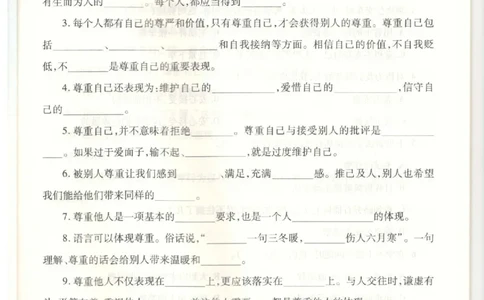 有生而为人的________。每个人,都应当得到________。
3.每个人都有自己的尊严和价值,只有尊重自己,才会获得别人的尊重。尊重自己包
括________、________、________和自我接纳等方面。相信自己的价值,不自我贬
低,不________是尊重自己的重要表现。
4.尊重自己还表现为:维护自己的________,爱惜自己的________,信守自
己的________。
5.尊重自己,并不意味着拒绝________。尊重自己与接受别人的批评是________
____。如果过于爱面子,输不起、________,就是过度维护自己。
6.被别人尊重让我们感到________、满足,充满________感。推己及人,别人也希望
我们能给他们带来同样的________。
7.尊重他人是一项基本的________要求,也是一个人________的体现。
8.语言可以体现尊重。俗话说,“________一句三冬暖,________伤人六月寒”。一句
理解、尊重的话会给别人带来温暖和________。
9.尊重他人不仅表现在________上,更应该落实在________上。与人交往时,谦虚有